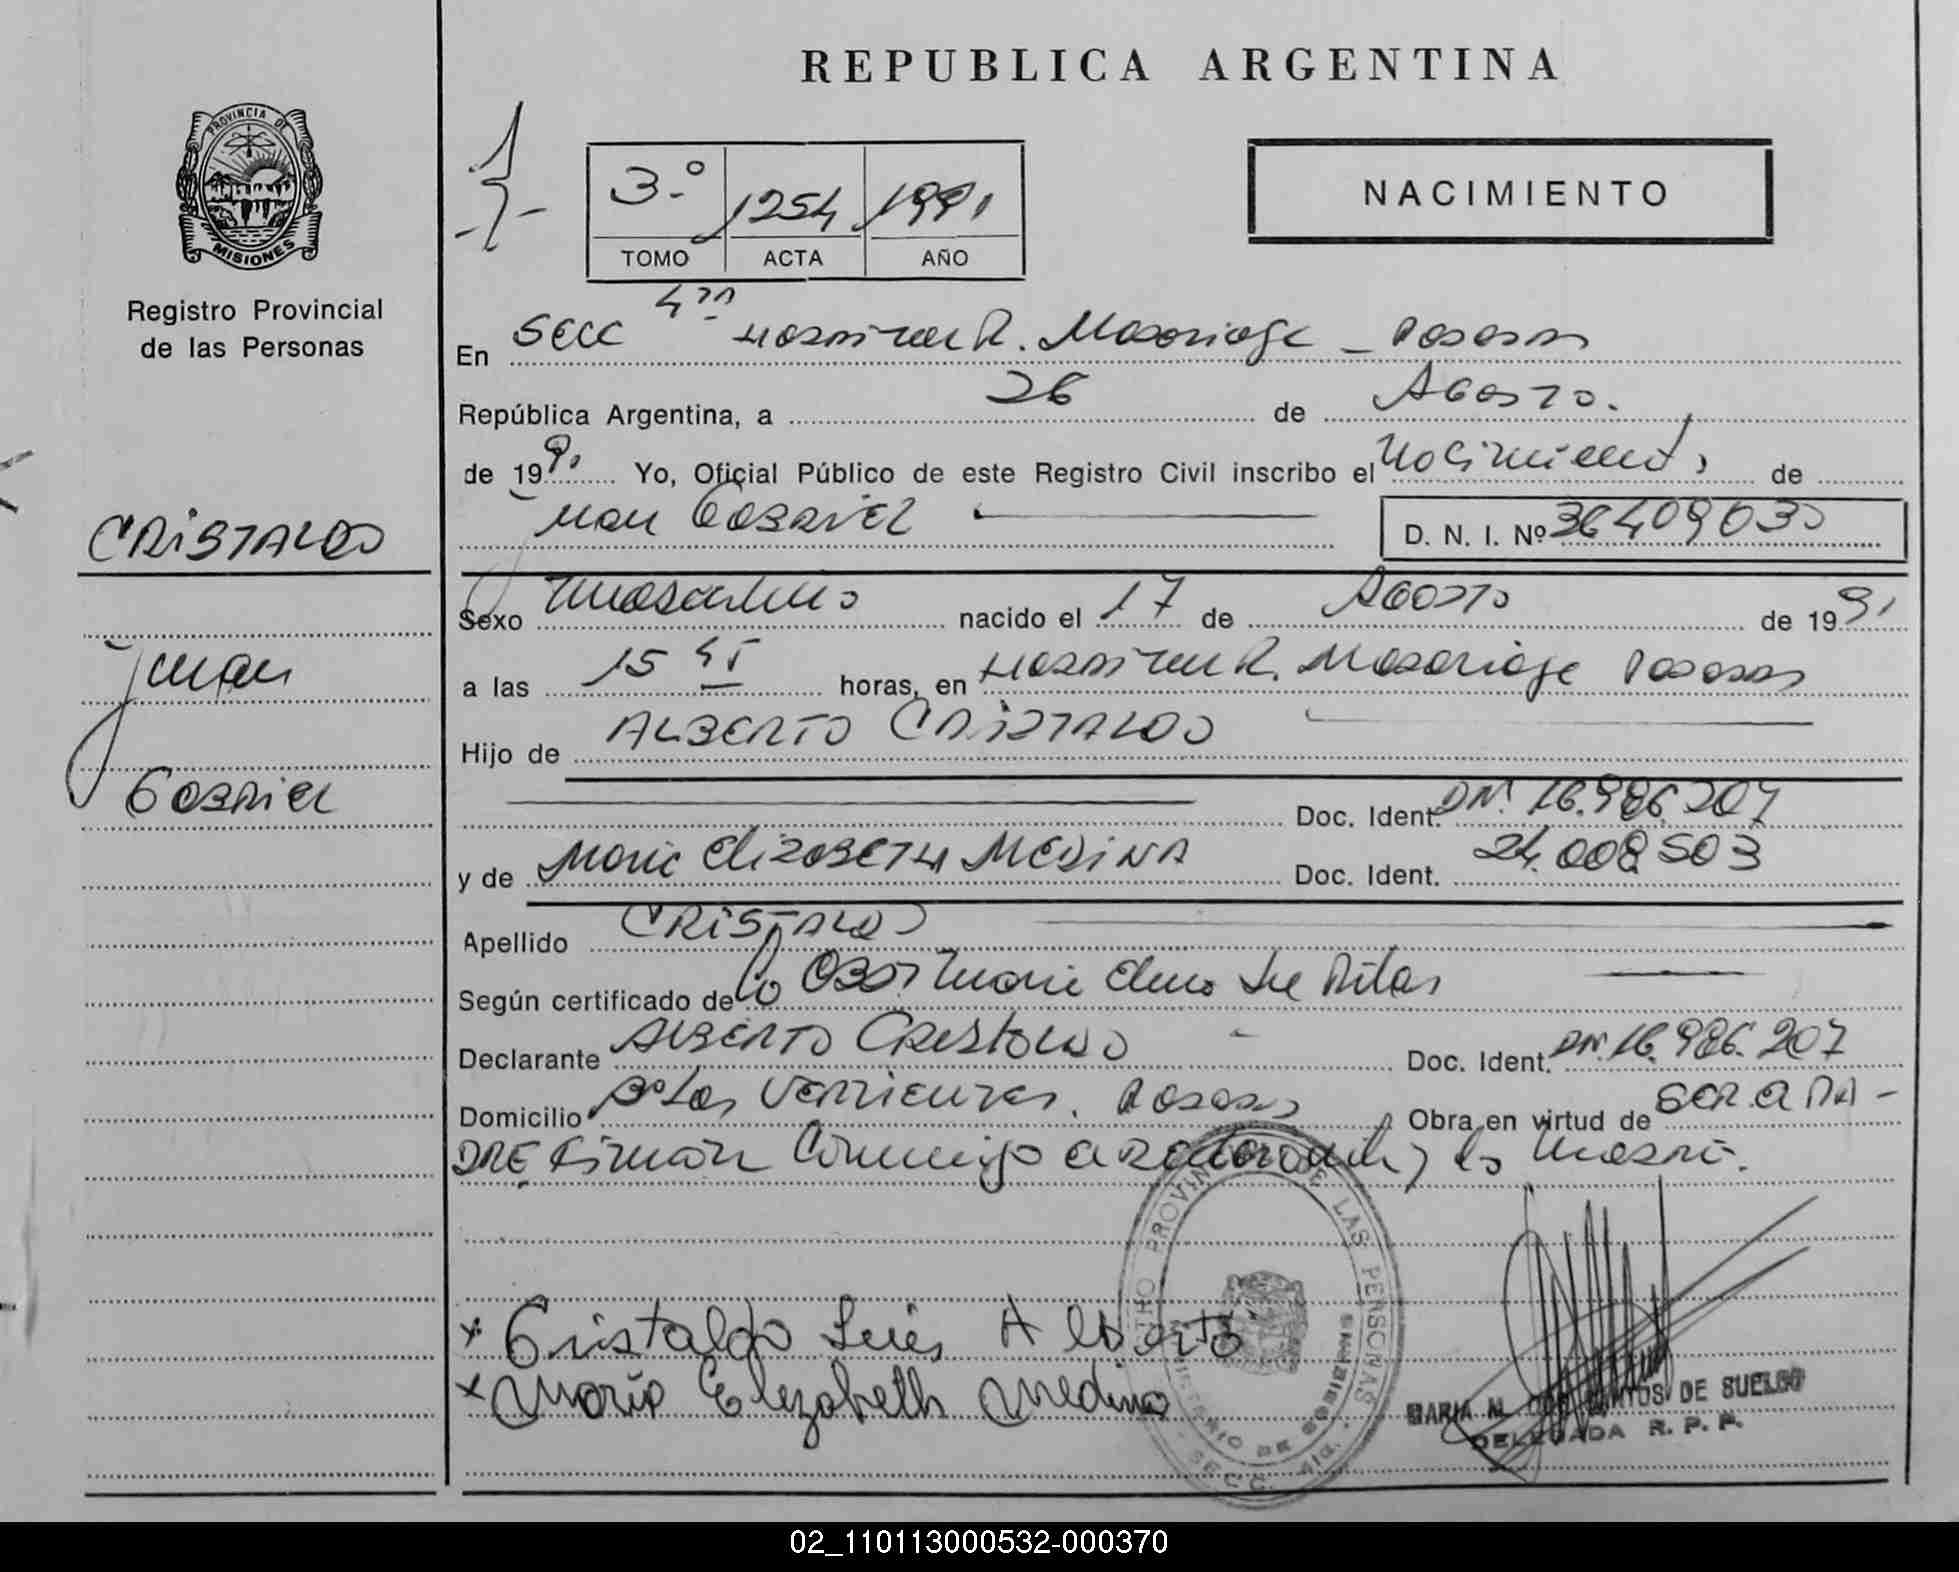 REPUBLICA ARGENTINA
PROVINCIA DE
MISIONES
Registro Provincial
de las Personas
3.º 1254 1991
TOMO ACTA AÑO
NACIMIENTO
En Secc 4ta Hospital R. Madariaga - Posadas
República Argentina, a 26 de Agosto.
de 1991 Yo, Oficial Público de este Registro Civil inscribo el Nacimiento de
Juan Gabriel
D. N. I. Nº 36409030
CRISTALDO
Juan
Gabriel
Sexo Masculino nacido el 17 de Agosto de 1991
a las 15 horas, en Hospital R. Madariaga Posadas
Hijo de ALBERTO CRISTALDO
Doc. Ident. DNI 16.986.207
y de Maria Elizabeth MEDINA Doc. Ident. 24.008503
Apellido CRISTALDO
Según certificado de la Obst Maria Elena
Declarante ALBERTO CRISTALDO Doc. Ident. DNI. 16.986.207
Domicilio Bº Las Vertientes. Posadas Obra en virtud de SER EL PA-
DRE Firman Conmigo el declarante y la madre.
REGISTRO PROVINCIAL DE LAS PERSONAS
MINISTERIO DE GOBIERNO
SECC. 4ta.
x Cristaldo Luis Alberto
x Maria Elizabeth Medina
MARIA M. DOS SANTOS DE SUELDO
DELEGADA R. P. P.
02_110113000532-000370